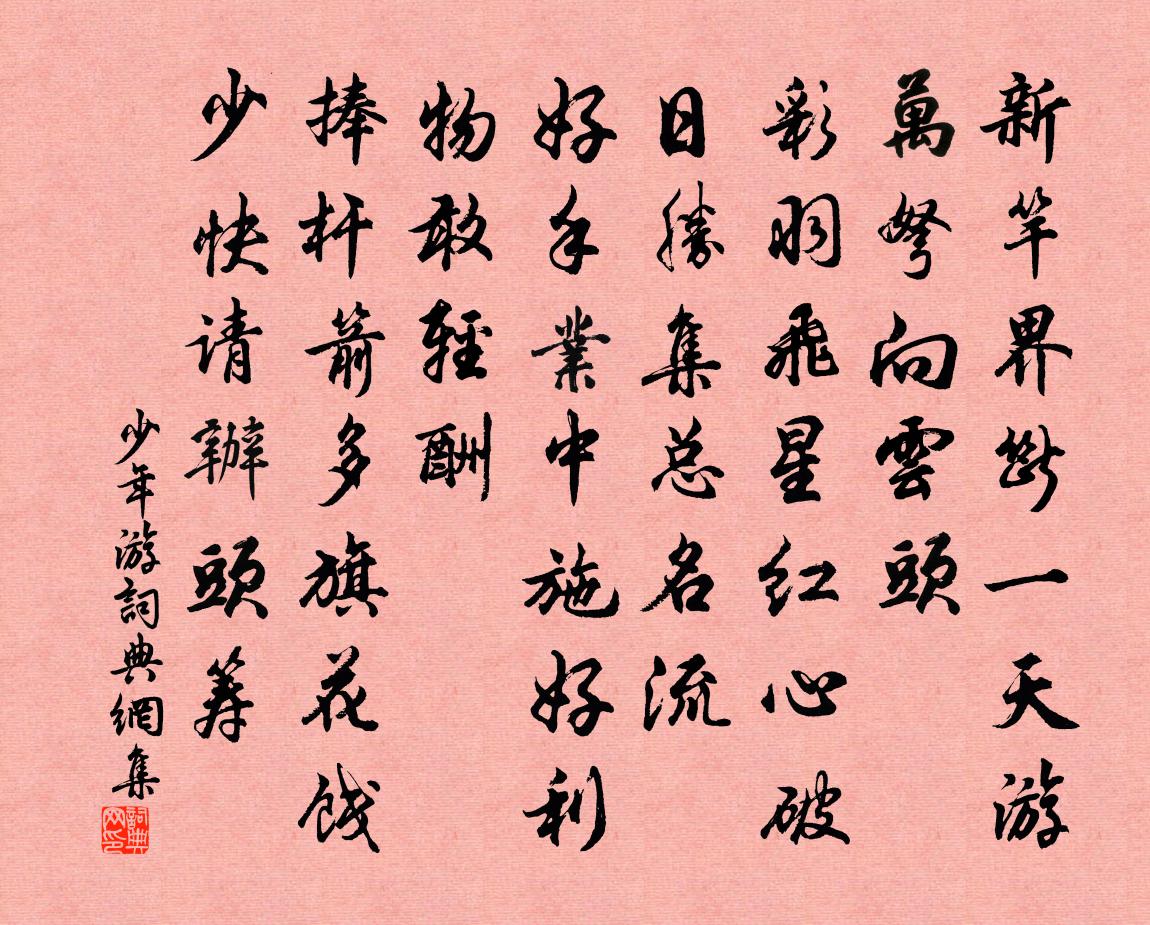 新竿界斷一天游
萬弩向雲頭
彩羽飛星红心破
日勝集总名流
好手業中施好利
物敢輕酬
捧杆箭多旗花饯
少快请辦頭筹
少年游詞典網集
詞典网印